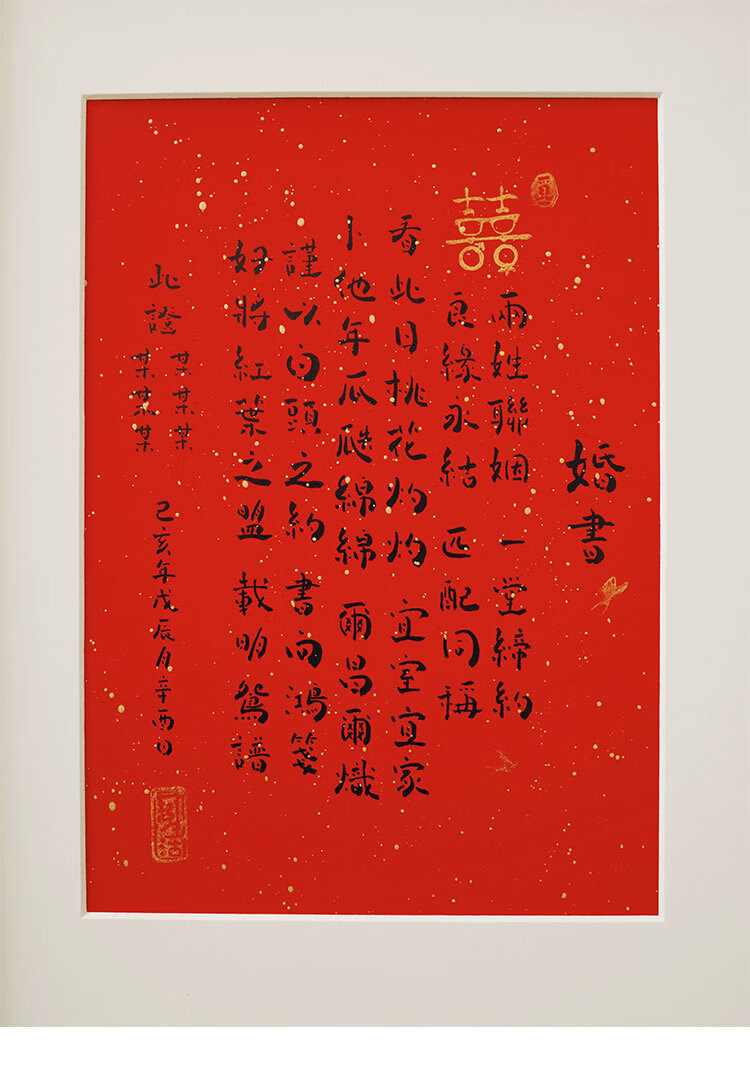 婚書
兩姓聯姻 一堂締約
良緣永結 匹配同稱
囍
看此日桃花灼灼 宜室宜家
卜他年瓜瓞綿綿 爾昌爾熾
謹以白頭之約 書向鴻箋
好將紅葉之盟 載明鴛譜
此證
某某某
某某某
己亥年戊辰月辛酉日